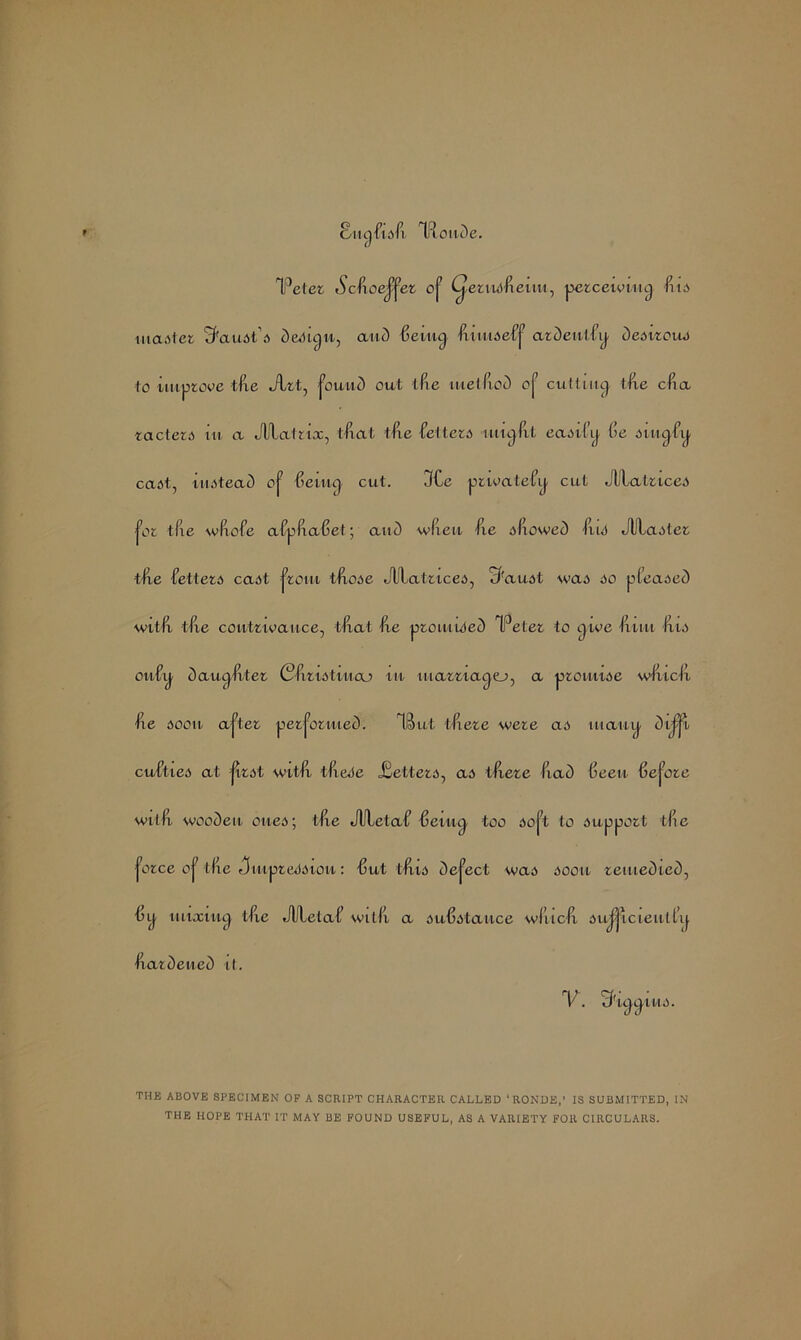 English Ronde.
Peter Schoeffer of Gernsheim, perceiving his
master Faust's design, and being himself ardently desirous
to improve the Art, found out the method of cutting the cha
racters in a Matrix, that the letters might easily be singly
cast, instead of being cut. He privately cut Matrices
for the whole alphabet; and when he showed his Master
the letters cast from those Matrices, Faust was so pleased
with the contrivance, that he promised Peter to give him his
only daughter Christina in marriage, a promise which
he soon after performed. But there were as many diffi
culties at first with these Letters, as there had been before
with wooden ones; the Metal being too soft to support the
force of the Impression: but this defect was soon remedied,
by mixing the Metal with a substance which sufficiently
hardened it.
V. Figgins.
THE ABOVE SPECIMEN OF A SCRIPT CHARACTER CALLED 'RONDE,' IS SUBMITTED, IN
THE HOPE THAT IT MAY BE FOUND USEFUL, AS A VARIETY FOR CIRCULARS.